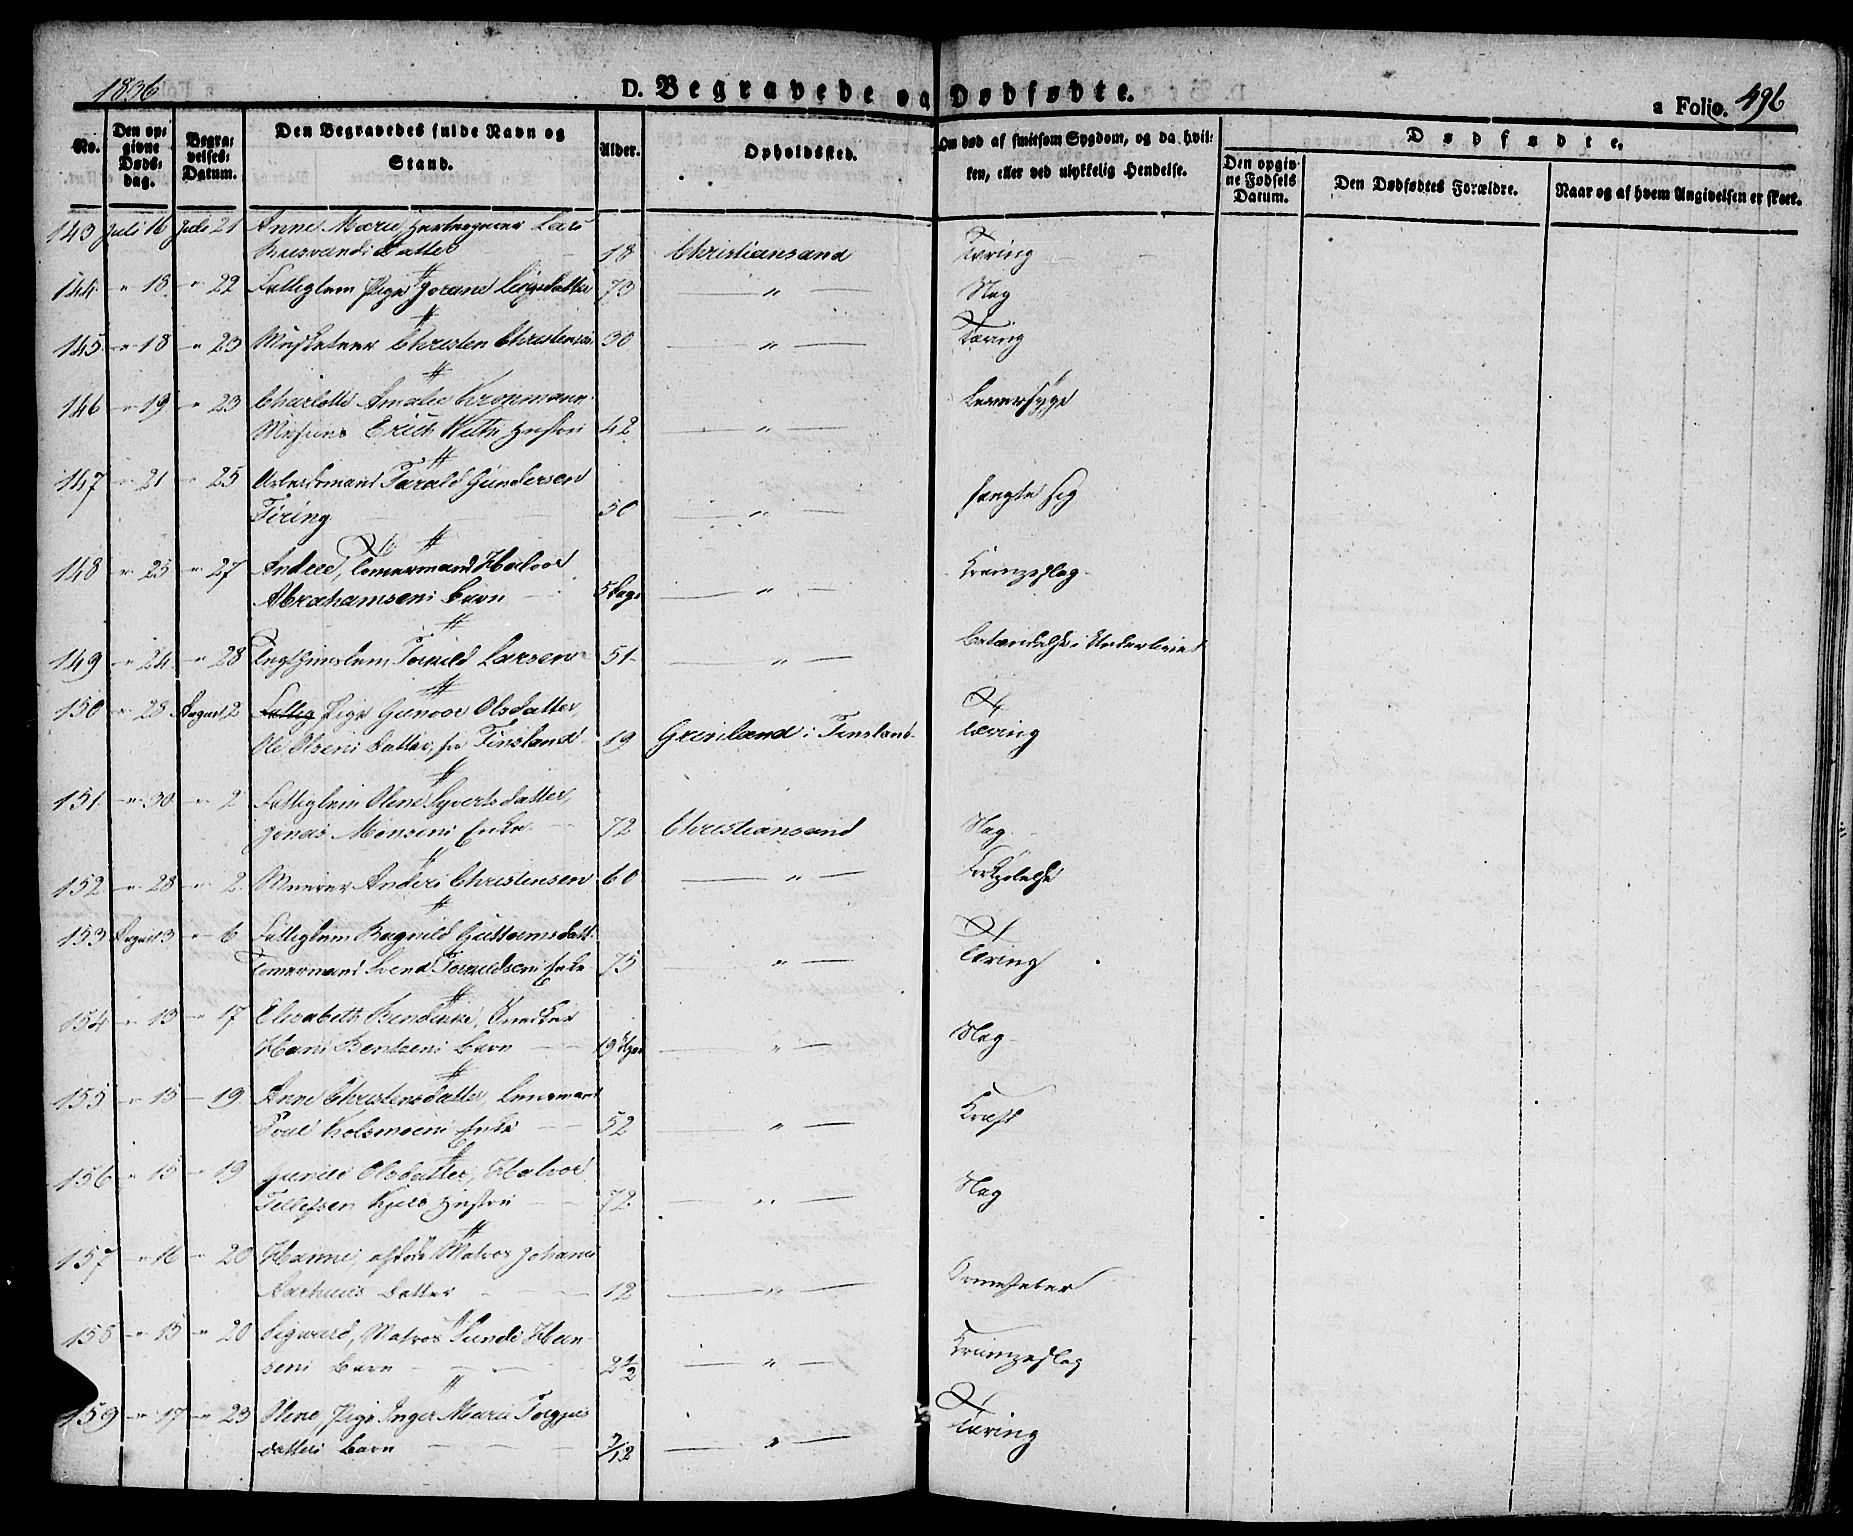 1836
D. Begravede og Dødfødte.
a Folio. 496
No.
Den opgivne Dødsdag.
Begravelses-Datum.
Den Begravedes fulde Navn og Stand.
Alder.
Opholdssted.
Om død af smitsom Sygdom, og da hvilken, eller ved ulykkelig Hendelse.
Dødfødte.
Den opgivne Fødsels Datum.
Den Dødfødtes Forældre.
Naar og af hvem Angivelsen er skeet.
143 Juli 16 Juli 21 Anne Marie, Lars
Datter 18 Christiansand Tæring
144 " 18 " 22 Fattiglem Pige Jorane 73 " Slag
145 " 18 " 23 Musketeer Christen Christensen 30 " Tæring
146 " 19 " 23 Charlotte Amalie Kropmann
Erich Hustru 42 " Leversyge
147 " 21 " 25 Arbeidsmand Tarald Gundersen
Tiring 50 " hængte sig
148 " 25 " 27 Andree, Tømermand Halvor
Abrahamsens Barn 5 Dage " Krampeslag
149 " 24 " 28 Torkild Larsen 51 " Betændelse i Underlivet
150 " 28 August 2 Fattig Pige Gunvor Olsdatter,
Ole Olsens Datter, fra Finsland 19 i Finsland Tæring
151 " 30 " 2 Fattiglem Olene Syvertsdatter,
Jonas Monsens Enke 72 Christiansand Slag
152 " 28 " 2 Muurer Anders Christensen 60 " Forkjølelse
153 August 3 " 6 Fattiglem Ragnild Guttormsdatt.
Tømermand Svend Torkildsens Enke 75 " Tæring
154 " 13 " 17 Elisabeth Bendikke, Snedker
Hans Bentsens Barn 19 Uger " Slag
155 " 15 " 19 Anne Christensdatter, Lensmand
Enke 52 " Kræft
156 " 15 " 19 Gunild Olsdatter, Halvor
Tellefsen Hustru 72 " Slag
157 " 16 " 20 Hanne, Matros Johannes
Datter 12 " Ormefeber
158 " 15 " 20 Sigvard, Matros Sunde Han-
sens Barn 2 1/2 " Krampeslag
159 " 17 " 23 Olene, Pige Inger Marie Torgjus
datters Barn 7/12 " Tæring